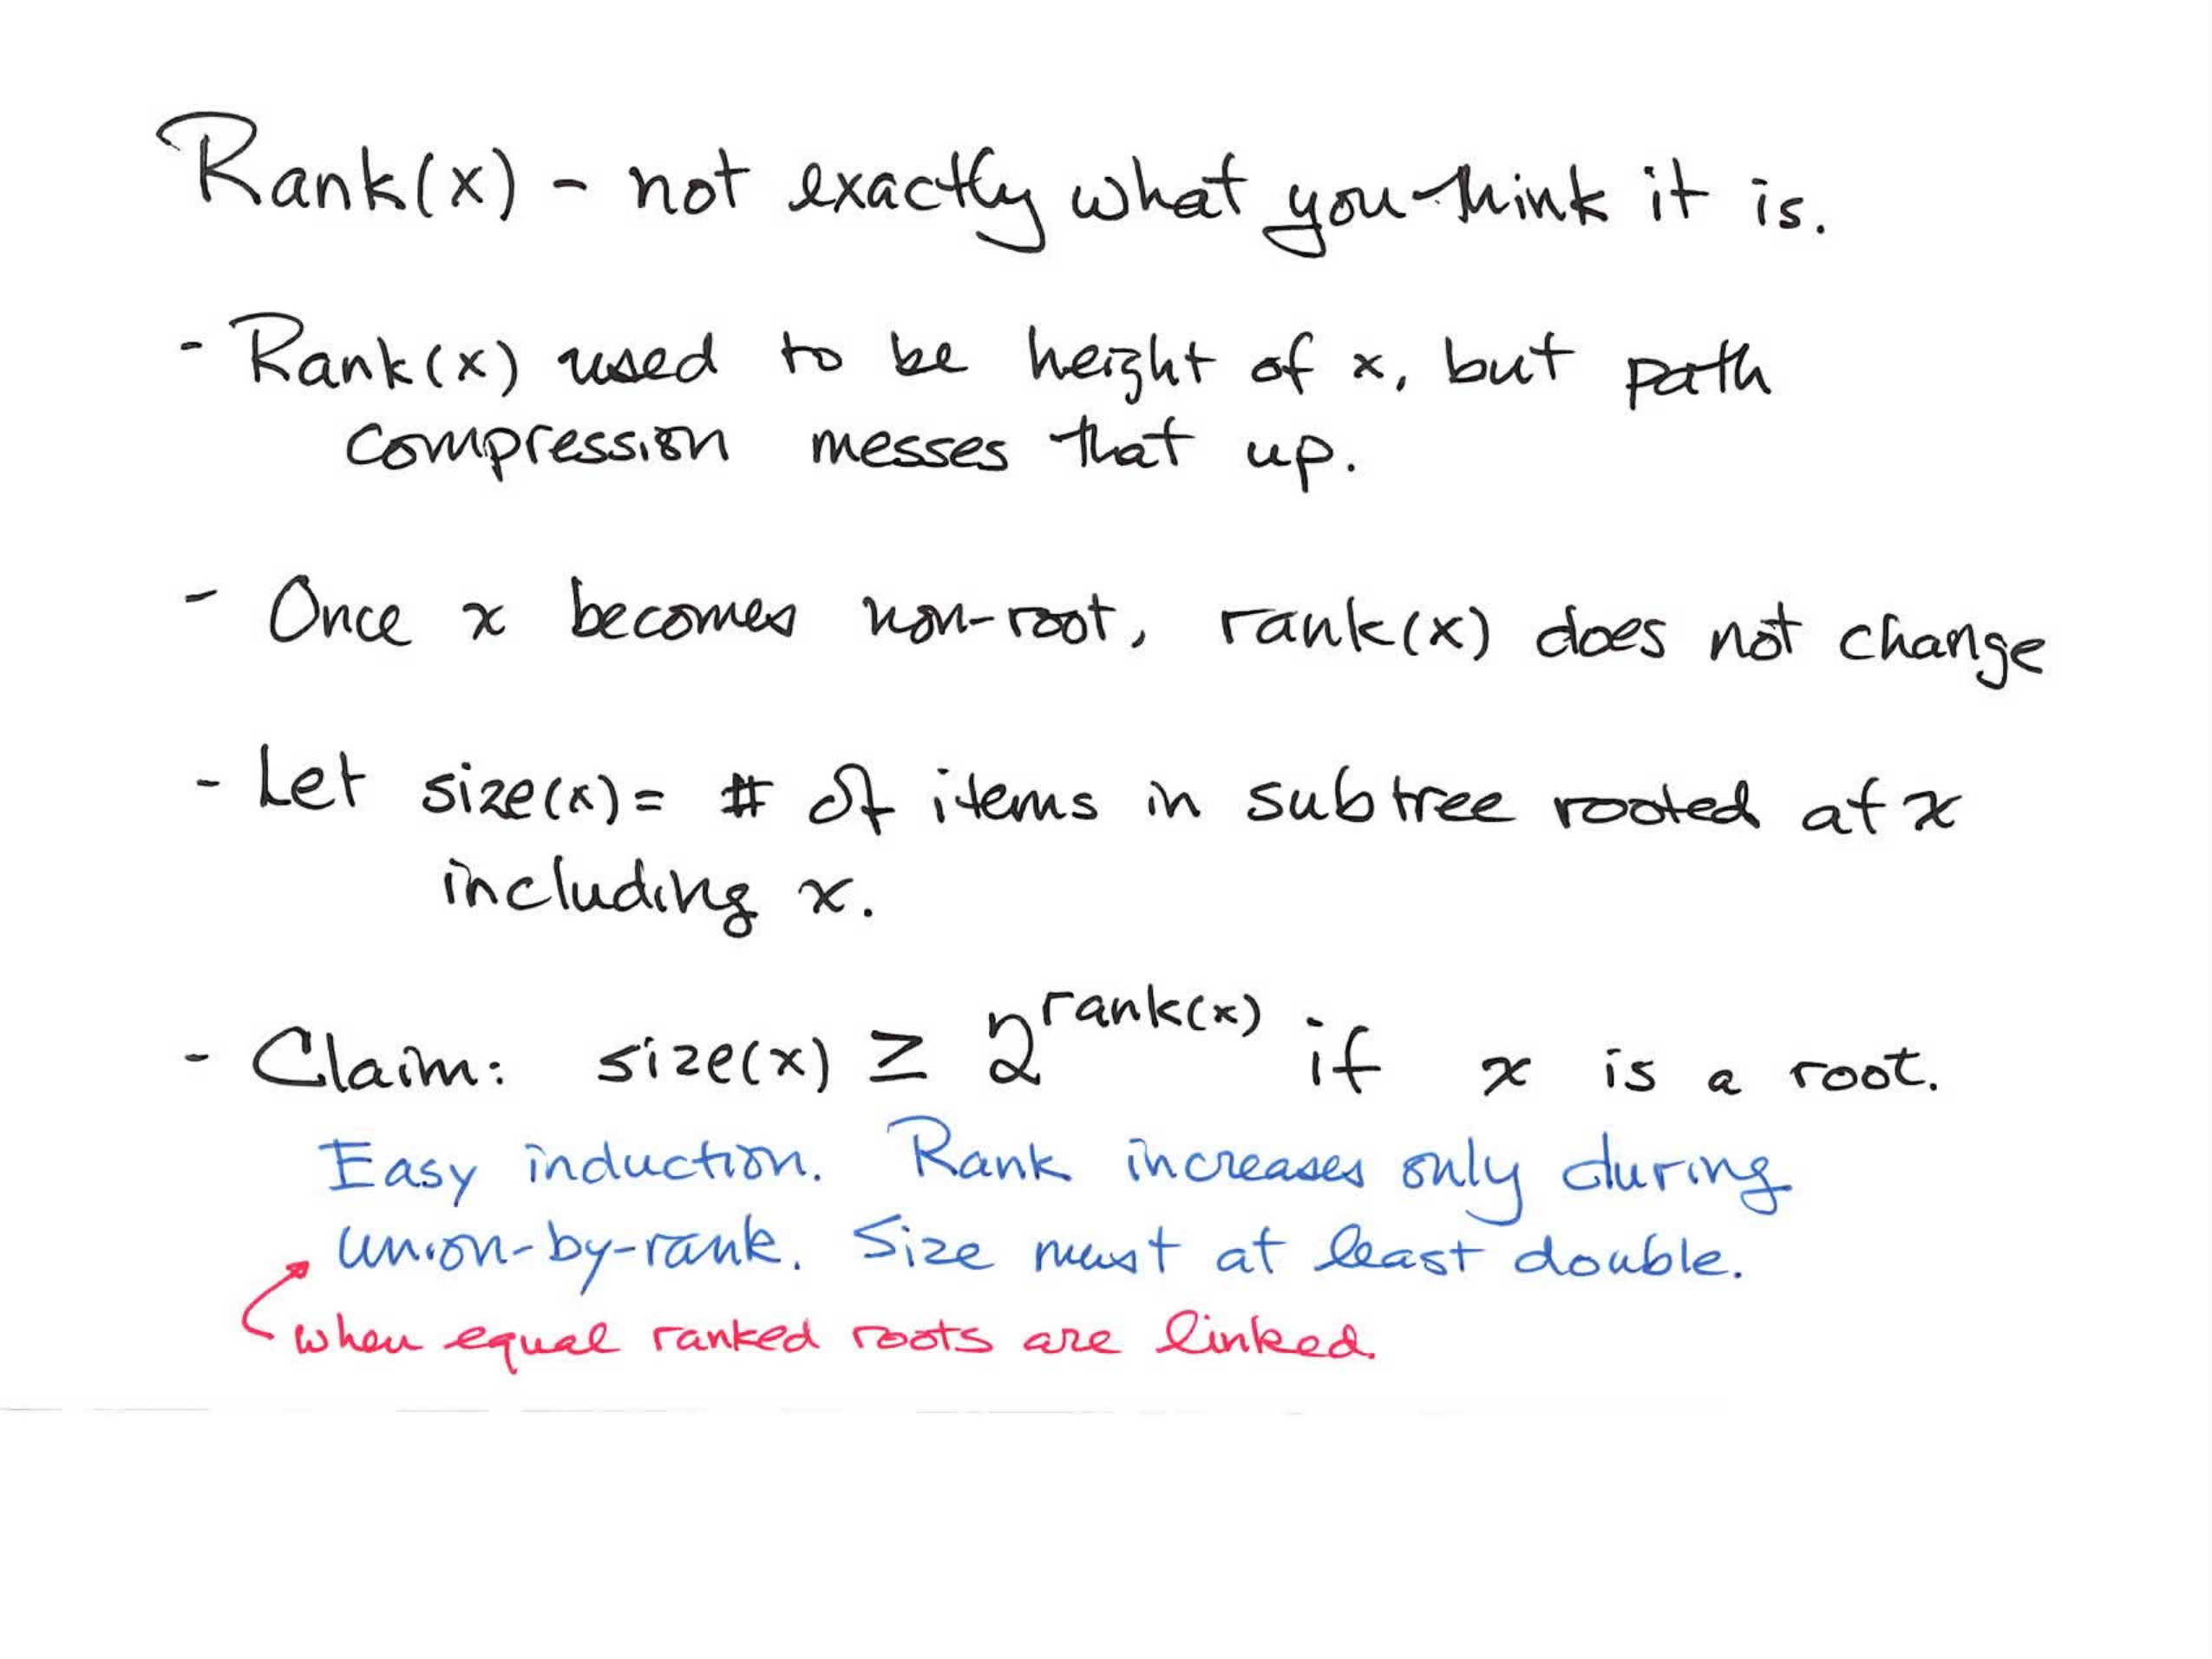 Rank(x) - not exactly what you think it is.
- Rank(x) used to be height of x, but path
compression messes that up.
- Once x becomes non-root, rank(x) does not change
- Let size(x) = # of items in subtree rooted at x
including x.
- Claim: size(x) ≥ 2^rank(x) if x is a root.
Easy induction. Rank increases only during
union-by-rank. Size must at least double.
when equal ranked roots are linked.